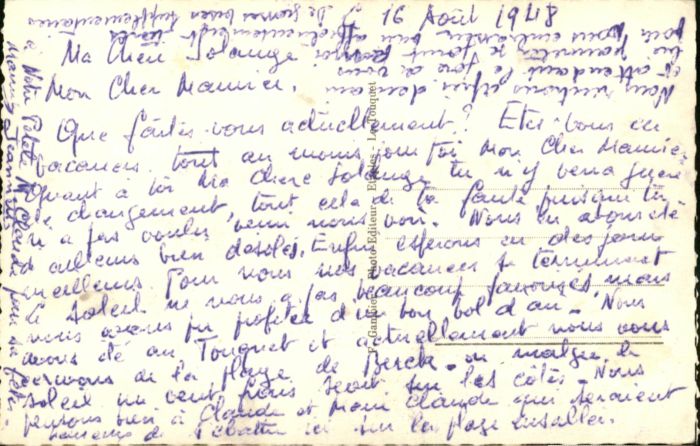 16 Août 1948
Ma Chère Solange
Mon Cher Maurice.
Que faites-vous actuellement ? Etes-vous en
vacances tout au moins pour toi Mon Cher Maurice
Quant à toi Ma Chère Solange tu n'y verra guère
de changement, tout cela de ta faute puisque tu
n'a pas voulu venir nous voir. Nous en avons été
d'ailleurs bien désolés. Enfin espérons en des jours
meilleurs. Pour nous nos vacances se terminent
le soleil ne nous a pas beaucoup favorisés, mais
nous avons pu profiter d'un bon bol d'air - Nous
avons été au Touquet et actuellement nous vous
écrivons de la plage de Berck - où malgré le
soleil un vent frais souffle sur les côtes - Nous
pensons bien à Claude et Marie Claude qui seraient
heureux de s'ébattre ici sur la plage ensoleillée.
Nous rentrons après demain
en attendant le
pour vous embrasser bien affectueusement
de grosses bises supplémentaires
à Notre Petite M. Claude pour sa fête.
Photo-Editeur
Le Touquet